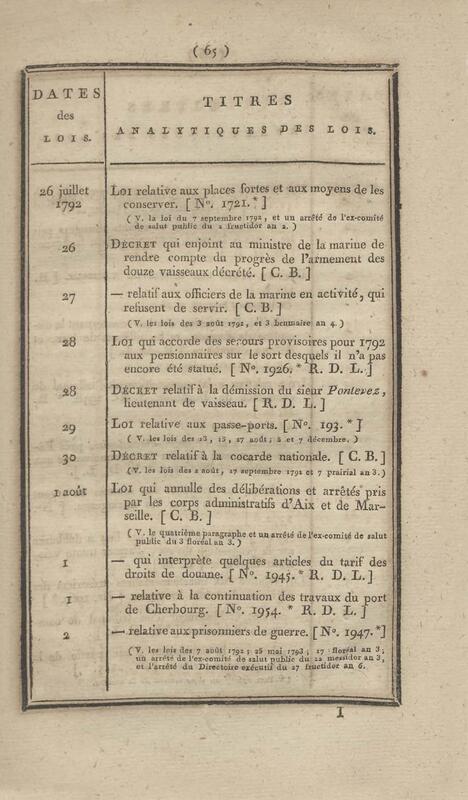 ( 65 )
DATES
des
LOIS.
TITRES
ANALYTIQUES DES LOIS.
26 juillet
1792
LOI relative aux places fortes et aux moyens de les
conserver. [ N°. 1721. * ]
( V. la loi du 7 septembre 1792, et un arrêté de l'ex-comité
de salut public du 2 fructidor an 2. )
26 DÉCRET qui enjoint au ministre de la marine de
rendre compte du progrès de l'armement des
douze vaisseaux décrété. [ C. B. ]
27 — relatif aux officiers de la marine en activité, qui
refusent de servir. [ C. B. ]
( V. les lois des 3 août 1792, et 3 brumaire an 4. )
28 LOI qui accorde des secours provisoires pour 1792
aux pensionnaires sur le sort desquels il n'a pas
encore été statué. [ N°. 1926. * R. D. L. ]
28 DÉCRET relatif à la démission du sieur Pontevez,
lieutenant de vaisseau. [ R. D. L. ]
29 LOI relative aux passe-ports. [ N°. 193. * ]
( V. les lois des 13, 27 août; et 7 décembre. )
30 DÉCRET relatif à la cocarde nationale. [ C. B. ]
(V. les lois des 2 août, 17 septembre 1792 et 7 prairial an 3.)
1 août LOI qui annulle des délibérations et arrêtés pris
par les corps administratifs d'Aix et de Mar-
seille. [ C. B. ]
(V. le quatrième paragraphe et un arrêté de l'ex-comité de salut
public du 3 floréal an 3. )
1 — qui interprète quelques articles du tarif des
droits de douane. [ N°. 1945. * R. D. L. ]
1 — relative à la continuation des travaux du port
de Cherbourg. [ N°. 1954. * R. D. L. ]
2 — relative aux prisonniers de guerre. [ N°. 1947. *]
(V. les lois des 7 août 1792; 25 mai 1793; 17 floréal an 3;
un arrêté de l'ex-comité de salut public du 22 messidor an 3,
et l'arrêté du Directoire exécutif du 27 fructidor an 6.
I